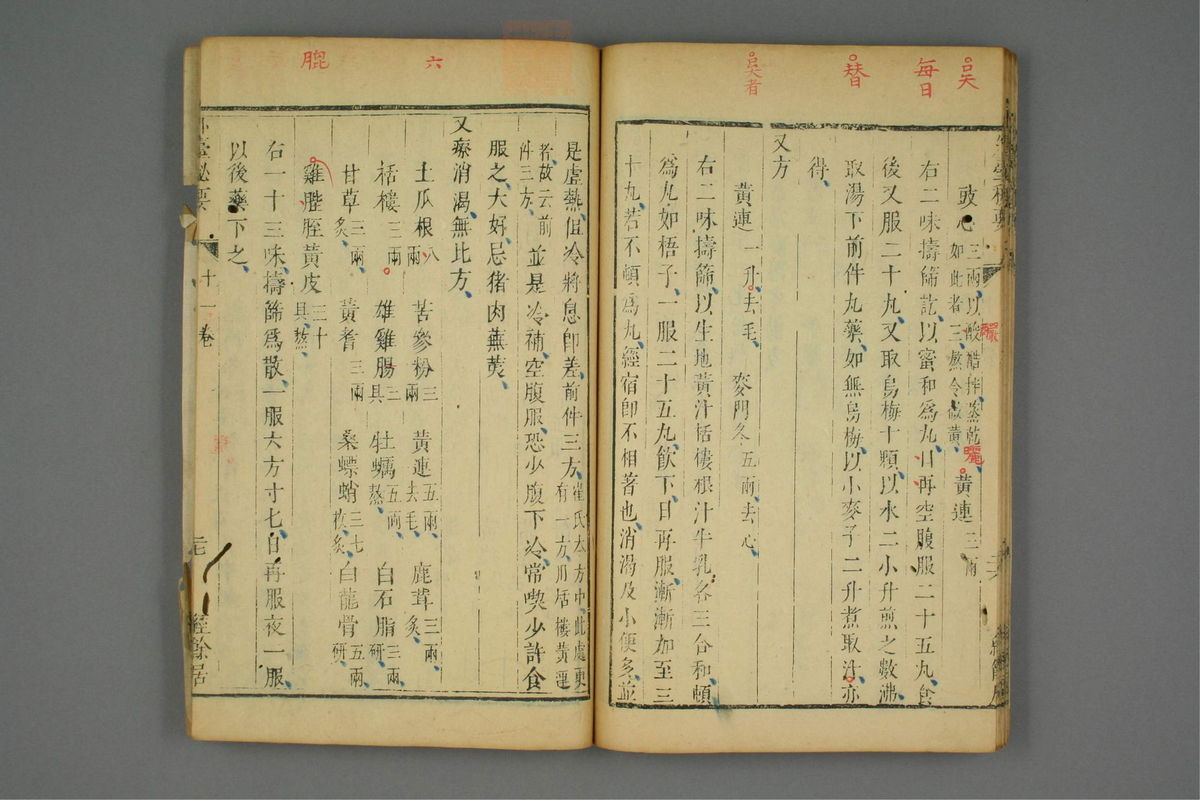 吴
每日
替
吴者
豉心三兩以酸醋拌蒸乾如此者三熬令微黄 黄連三兩
右二味擣篩訖以蜜和為丸日再空腹服二十五丸食
後又服二十丸又取烏梅十顆以水二小升煎之數沸
取湯下前件丸藥如無烏梅以小麥子二升煮取汁亦
得
又方
黃連一升去毛 麥門冬五兩去心
右二味擣篩以生地黃汁栝樓根汁牛乳各三合和頓
為丸如梧子一服二十五丸飲下日再服漸漸加至三
十丸若不頓為丸經宿即不相著也消渴及小便多並
六
膍
是虛熱但冷將息即差前件三方崔氏本方中此處更有一方用栝樓黃連
者故云前件三方並是冷補空腹服恐少腹下冷常喫少許食
服之大好忌豬肉蕪荑
又療消渴無比方
土瓜根八兩 苦參粉三兩 黃連五兩去毛 鹿茸三兩炙
栝樓三兩 雄雞腸三具 牡蠣五兩熬 白石脂三兩研
甘草三兩炙 黃耆三兩 桑螵蛸三七枚炙 白龍骨五兩研
雞膍胵黃皮三十具熬
右一十三味擣篩為散一服六方寸匕日再服夜一服
以後藥下之
外臺祕要 十一卷 經餘居